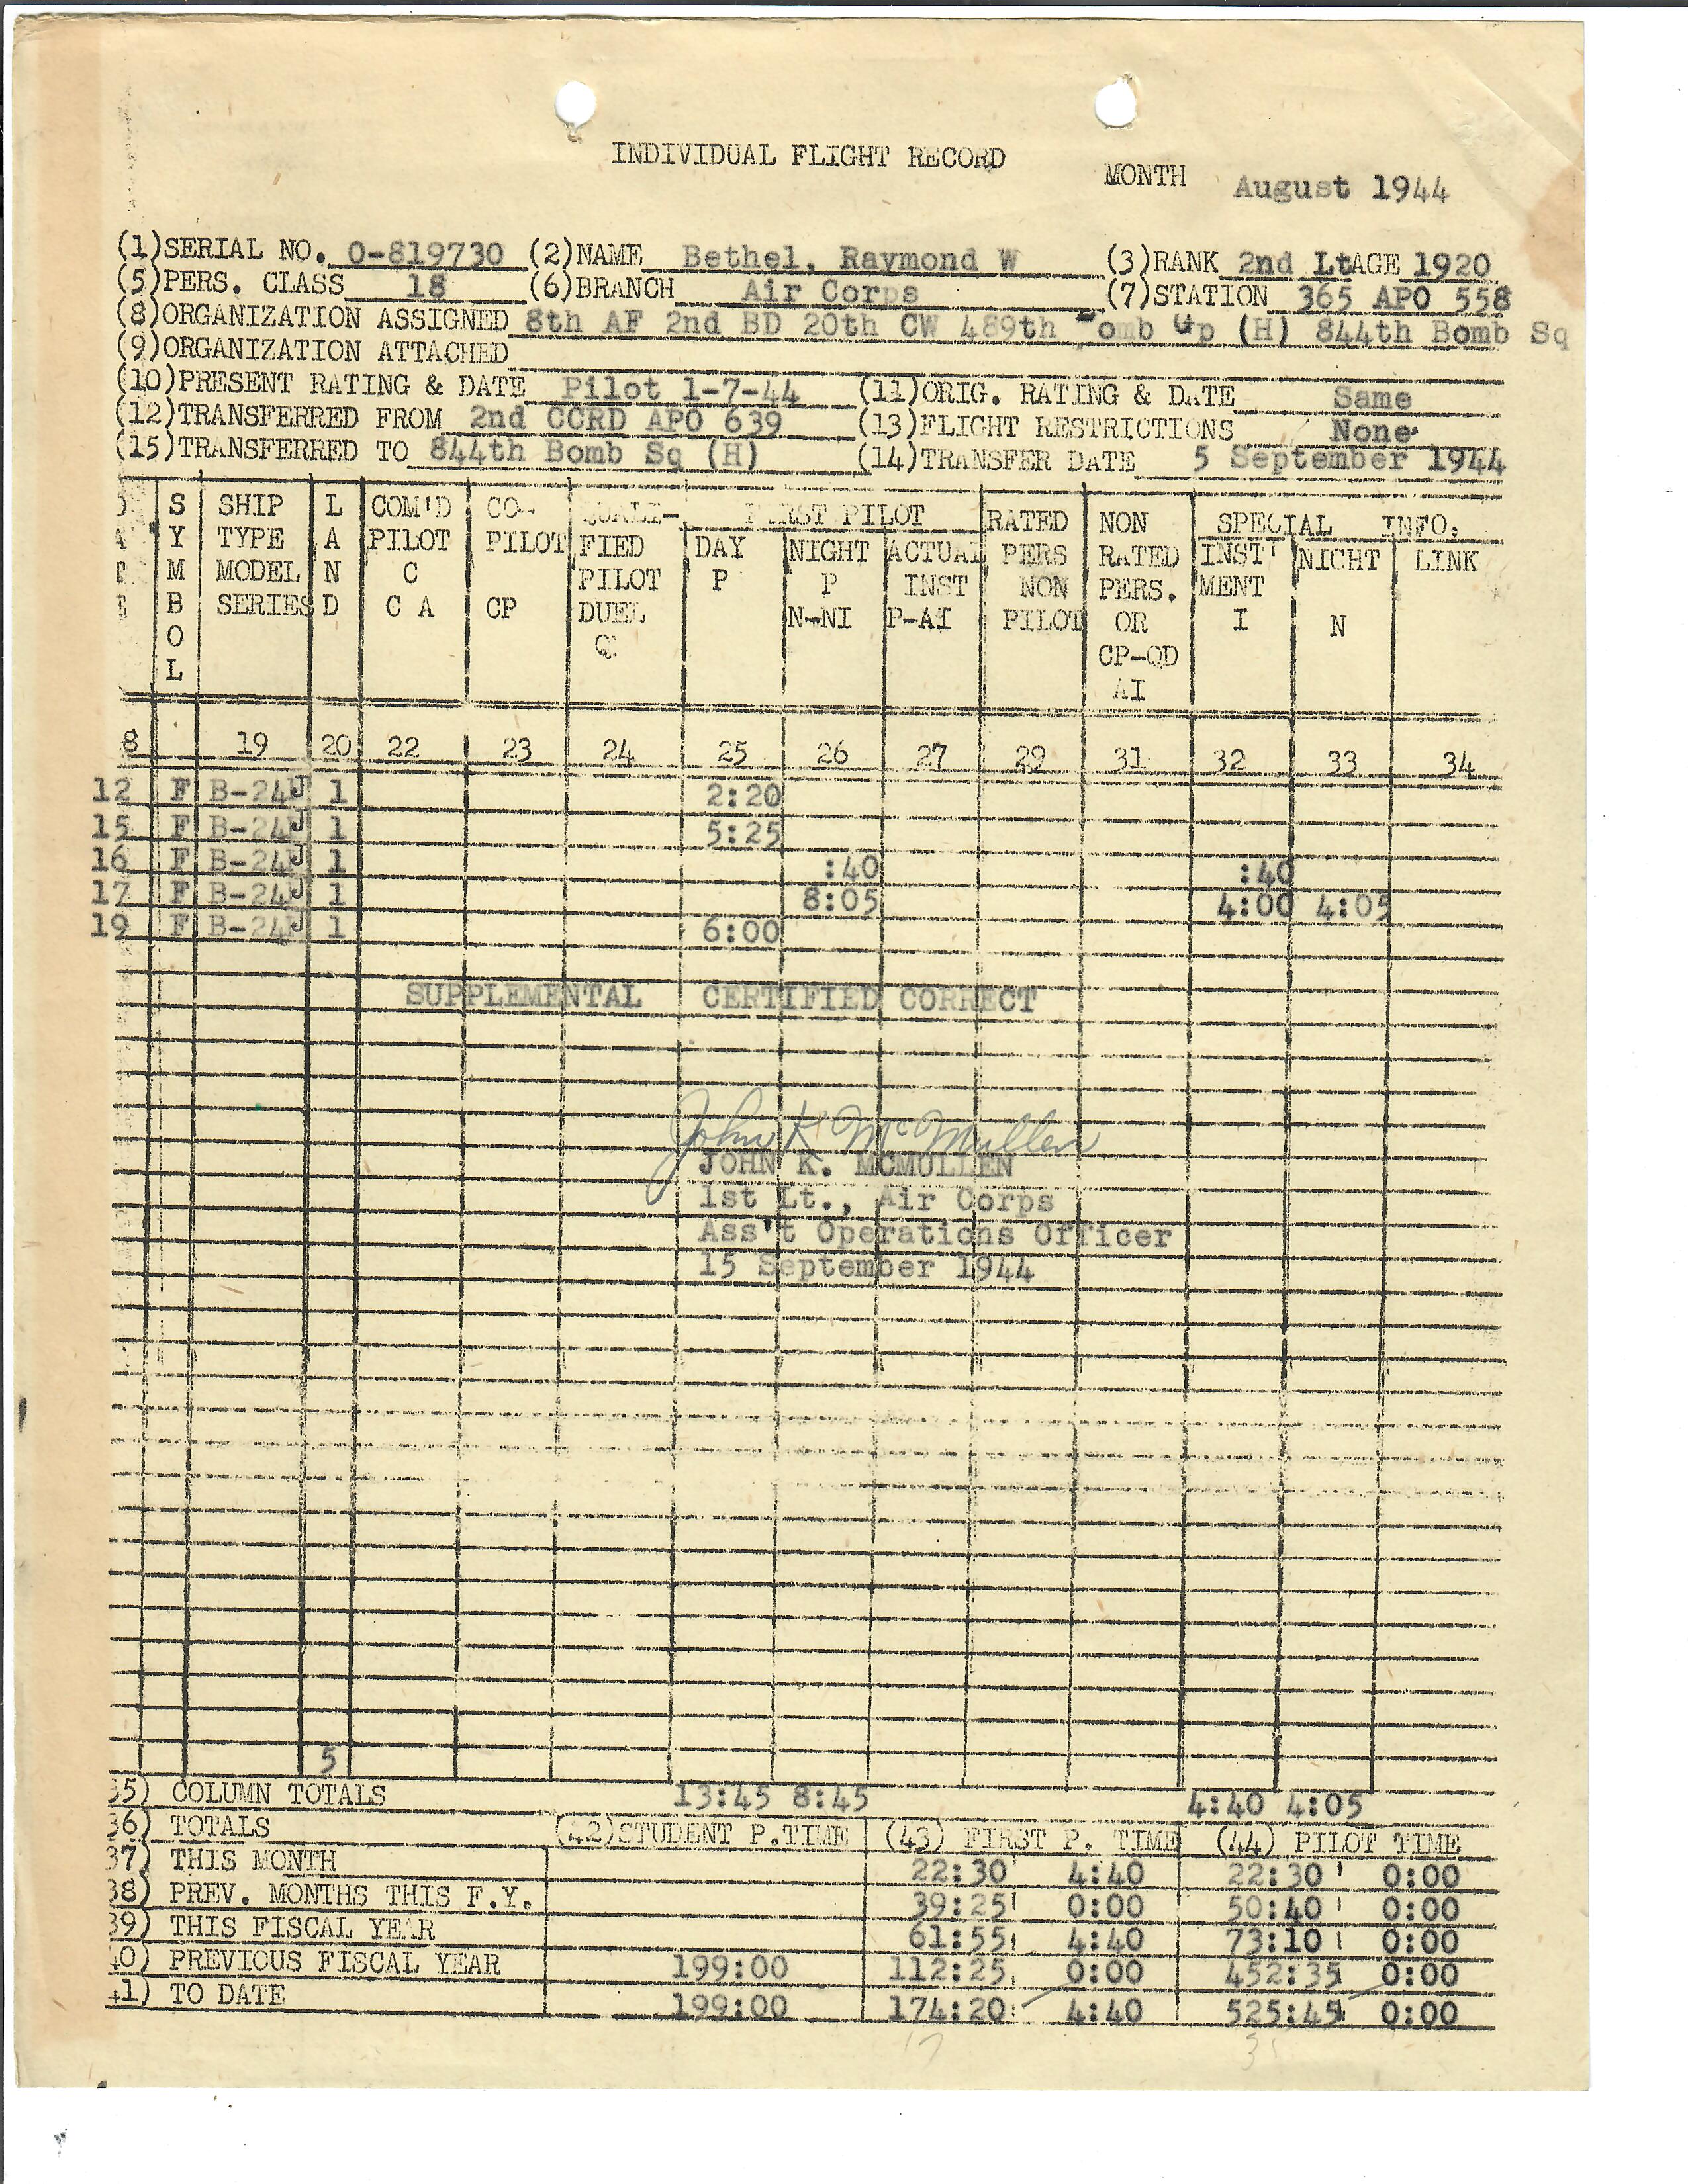 INDIVIDUAL FLIGHT RECORD
MONTH August 1944
(1)SERIAL NO. O-819730 (2)NAME Bethel, Raymond W (3)RANK 2nd Lt AGE 1920
(5)PERS. CLASS 18 (6)BRANCH Air Corps (7)STATION 365 APO 558
(8)ORGANIZATION ASSIGNED 8th AF 2nd BD 20th CW 489th omb Gp (H) 844th Bomb Sq
(9)ORGANIZATION ATTACHED
(10)PRESENT RATING & DATE Pilot 1-7-44 (11)ORIG. RATING & DATE Same
(12)TRANSFERRED FROM 2nd CCRD APO 639 (13)FLIGHT RESTRICTIONS None
(15)TRANSFERRED TO 844th Bomb Sq (H) (14)TRANSFER DATE 5 September 1944
S SHIP L COM'D CO- QUALI- FIRST PILOT RATED NON SPECIAL INFO.
Y TYPE A PILOT PILOT FIED DAY NIGHT ACTUAL PERS RATED INST' NIGHT LINK
M MODEL N C PILOT P P INST NON PERS. MENT
B SERIES D C A CP DUEL N-NI P-AI PILOT OR I N
O Q CP-QD
L AI
8 19 20 22 23 24 25 26 27 29 31 32 33 34
12 F B-24J 1 2:20
15 F B-24J 1 5:25
16 F B-24J 1 :40 :40
17 F B-24J 1 8:05 4:00 4:05
19 F B-24J 1 6:00
SUPPLEMENTAL CERTIFIED CORRECT
John K McMullen
JOHN K. MCMULLEN
1st Lt., Air Corps
Ass't Operations Officer
15 September 1944
5
35) COLUMN TOTALS 13:45 8:45 4:40 4:05
36) TOTALS (42)STUDENT P.TIME (43) FIRST P. TIME (44) PILOT TIME
37) THIS MONTH 22:30 4:40 22:30 0:00
38) PREV. MONTHS THIS F.Y. 39:25 0:00 50:40 0:00
39) THIS FISCAL YEAR 61:55 4:40 73:10 0:00
40) PREVIOUS FISCAL YEAR 199:00 112:25 0:00 452:35 0:00
41) TO DATE 199:00 174:20 4:40 525:45 0:00